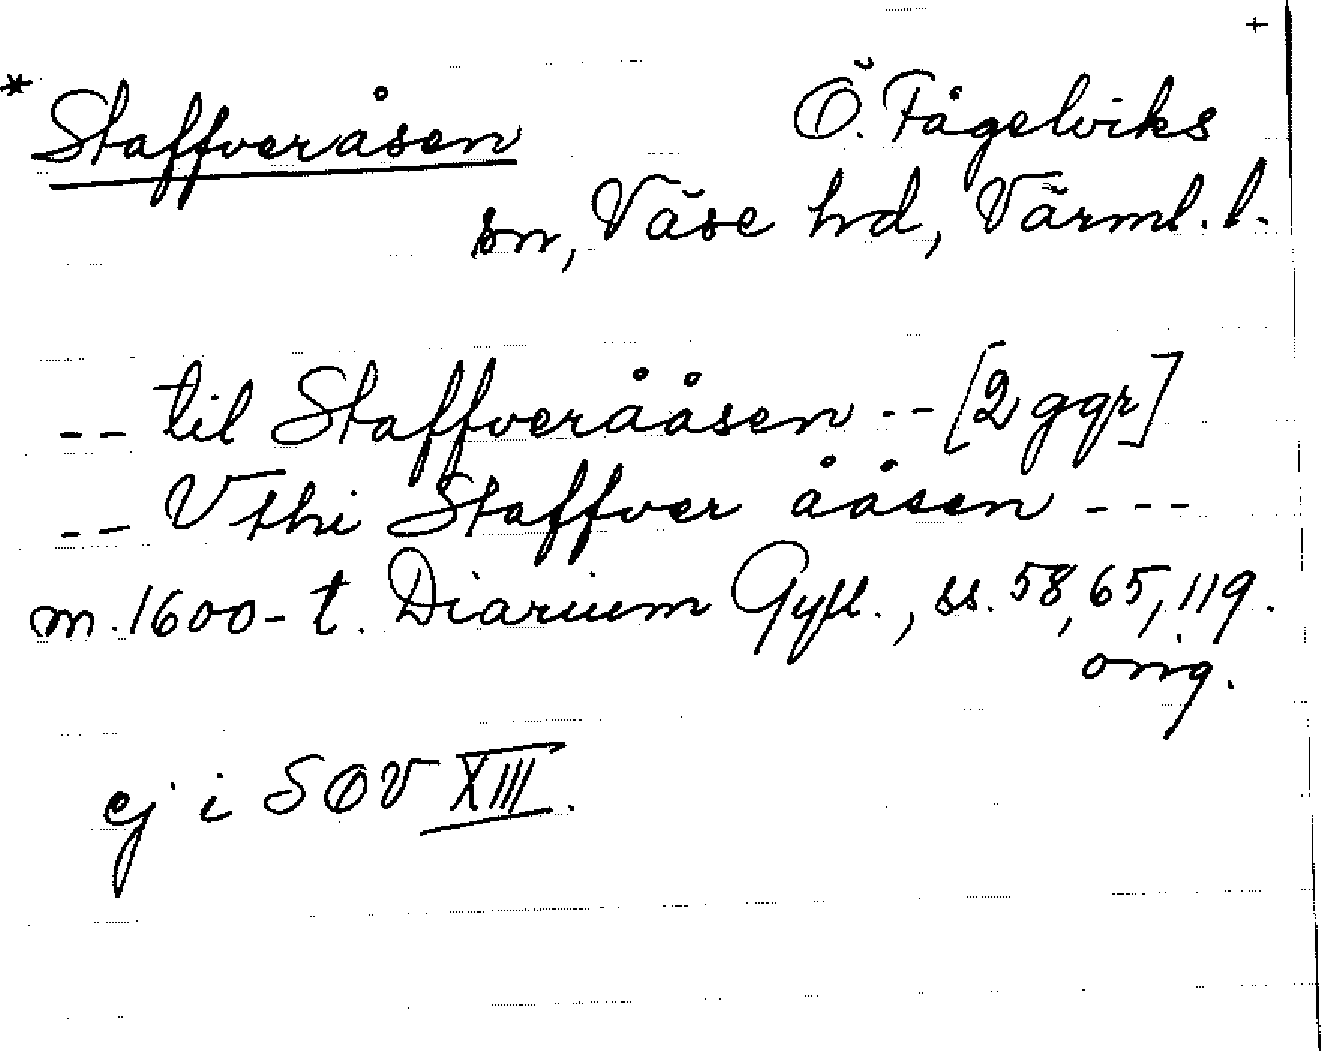 +
* Staffveråsen Ö. Fågelviks
sn, Väse hd, Värml. l.
-- til Staffverååsen -- [2 ggr]
-- Vthi Staffver ååsen ---
m. 1600-t. Diarium Gyll., ss. 58, 65, 119.
orig.
ej i SOV XIII.